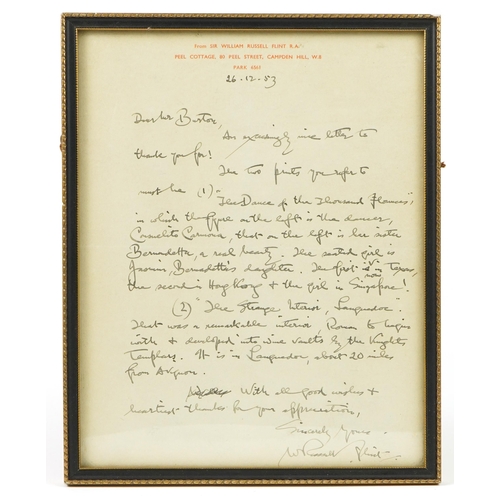 From SIR WILLIAM RUSSELL FLINT R.A.
PEEL COTTAGE, 80 PEEL STREET, CAMPDEN HILL, W.8
PARK
26-12-53
Dear Mr Barton,
An exceedingly nice letter to
thank you for!
The two prints you refer to
must be (1) "The Dance of the Thousand Flounces",
in which the figure on the left is the dancer,
Consuelito Carmona, that on the left is her sister
Bernadetta, a real beauty. The seated girl is
Bernadetta's daughter. The first is now in Texas,
the second in Hong Kong & the girl in Singapore!
(2) "The Strange Interior, Languedoc".
That was a remarkable interior, Roman to begin
with & developed into wine vaults by the Knights
Templars. It is in Languedoc, about 20 miles
from Avignon.
With all good wishes &
heartiest thanks for your appreciation,
Sincerely Yours
W Russell Flint